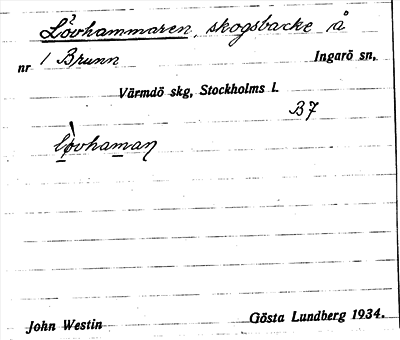 Lövhammaren, skogsbacke å
nr 1 Brunn Ingarö sn,
Värmdö skg, Stockholms l.
B7
John Westin Gösta Lundberg 1934.